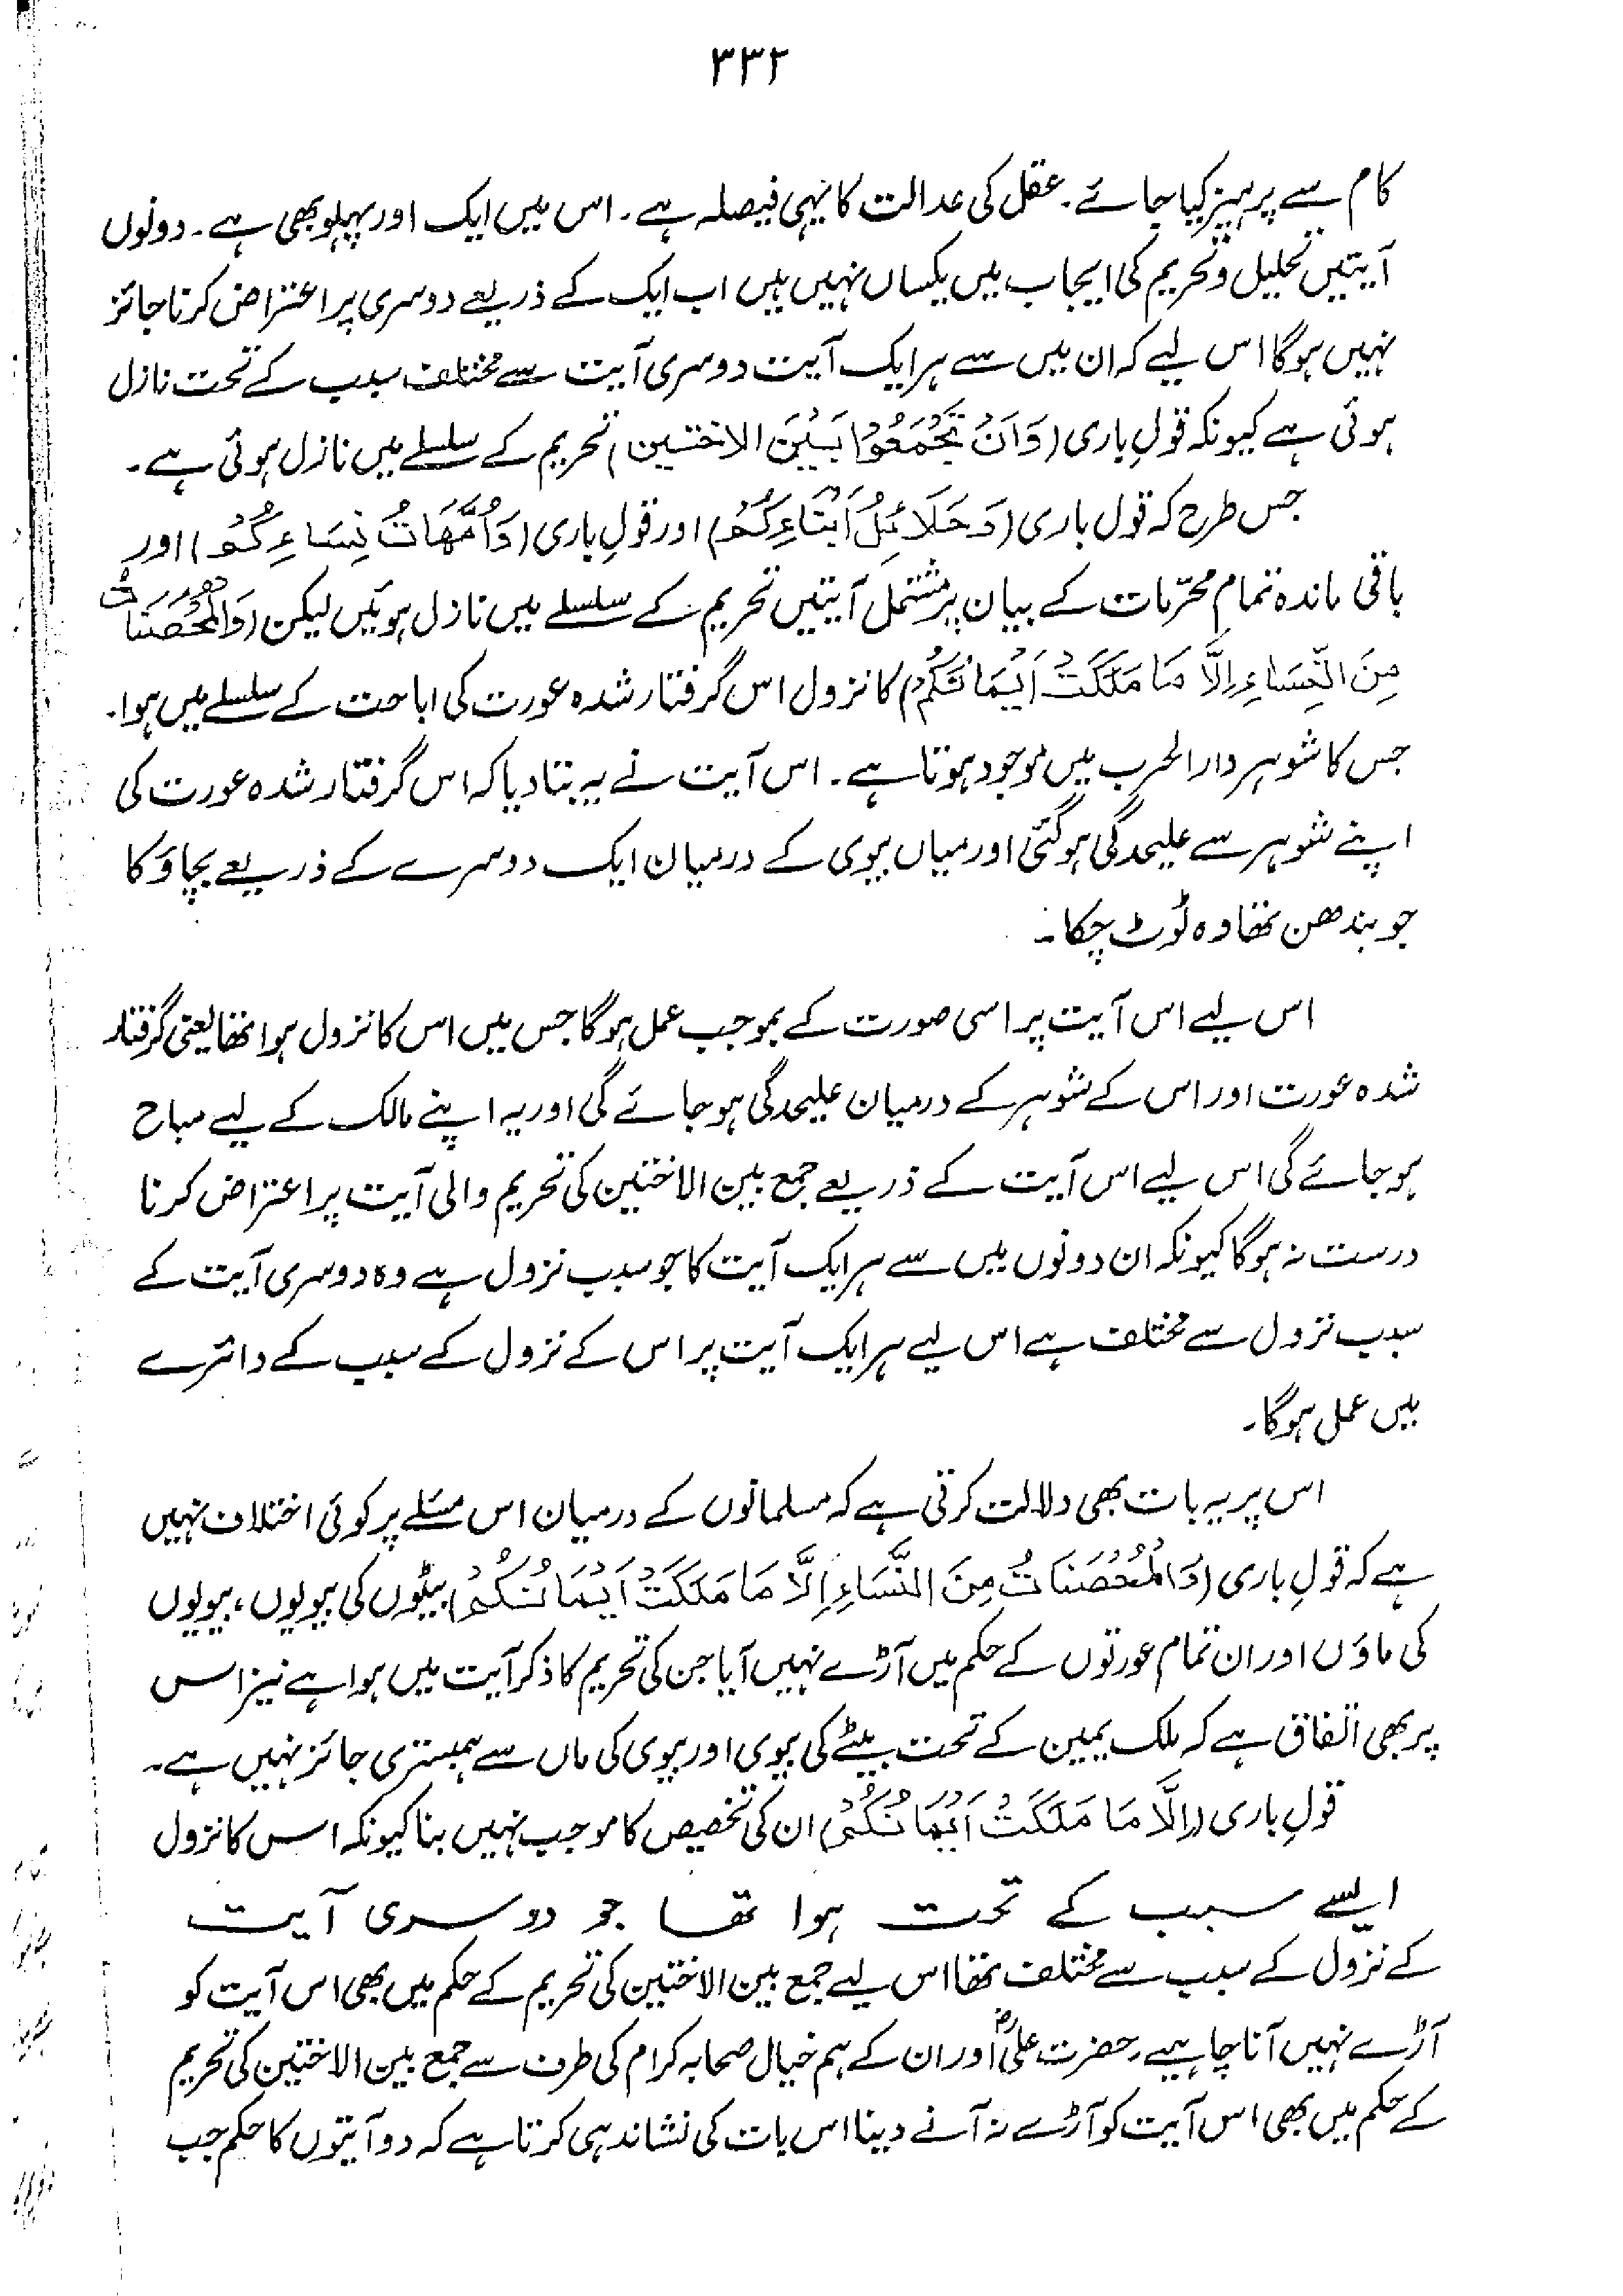 ۳۳۲
کام سے پرہیز کیا جائے۔ عقل کی عدالت کا یہی فیصلہ ہے۔ اس میں ایک اور پہلو بھی ہے۔ دونوں
آیتیں تحلیل و تحریم کی ایجاب میں یکساں نہیں ہیں اب ایک کے ذریعے دوسری پر اعتراض کرنا جائز
نہیں ہوگا اس لیے کہ ان میں سے ہر ایک آیت دوسری آیت سے مختلف سبب کے تحت نازل
ہوئی ہے کیونکہ قولِ باری (وَاَنْ تَجْمَعُوْا بَیْنَ الاختین) تحریم کے سلسلے میں نازل ہوئی ہے۔
جس طرح کہ قول باری (وَحَلَائِلُ اَبْنَاءِكُمْ) اور قولِ باری (وَاُمَّهَاتُ نِسَاءِكُمْ) اور
باقی ماندہ تمام محرّمات کے بیان پر مشتمل آیتیں تحریم کے سلسلے میں نازل ہوئیں لیکن (وَالْمُحْصَنَاتُ
مِنَ النِّسَاءِ اِلَّا مَا مَلَكَتْ اَيْمَانُكُمْ) کا نزول اس گرفتار شدہ عورت کی اباحت کے سلسلے میں ہوا۔
جس کا شوہر دارالحرب میں موجود ہوتا ہے۔ اس آیت نے یہ بتا دیا کہ اس گرفتار شدہ عورت کی
اپنے شوہر سے علیحدگی ہوگئی اور میاں بیوی کے درمیان ایک دوسرے کے ذریعے بچاؤ کا
جو بندھن تھا وہ ٹوٹ چکا۔
اس لیے اس آیت پر اسی صورت کے بموجب عمل ہوگا جس میں اس کا نزول ہوا تھا یعنی گرفتار
شدہ عورت اور اس کے شوہر کے درمیان علیحدگی ہو جائے گی اور یہ اپنے مالک کے لیے مباح
ہو جائے گی اس لیے اس آیت کے ذریعے جمع بین الاختین کی تحریم والی آیت پر اعتراض کرنا
درست نہ ہوگا کیونکہ ان دونوں میں سے ہر ایک آیت کا جو سبب نزول ہے وہ دوسری آیت کے
سبب نزول سے مختلف ہے اس لیے ہر ایک آیت پر اس کے نزول کے سبب کے دائرے
میں عمل ہوگا۔
اس پر یہ بات بھی دلالت کرتی ہے کہ مسلمانوں کے درمیان اس مسئلے پر کوئی اختلاف نہیں
ہے کہ قولِ باری (وَالْمُحْصَنَاتُ مِنَ النِّسَاءِ اِلَّا مَا مَلَكَتْ اَيْمَانُكُمْ) بیٹوں کی بیویوں، بیویوں
کی ماؤں اور ان تمام عورتوں کے حکم میں آڑے نہیں آیا جن کی تحریم کا ذکر آیت میں ہوا ہے نیز اس
پر بھی اتفاق ہے کہ ملک یمین کے تحت بیٹے کی بیوی اور بیوی کی ماں سے ہمبستری جائز نہیں ہے۔
قولِ باری (اِلَّا مَا مَلَكَتْ اَيْمَانُكُمْ) ان کی تخصیص کا موجب نہیں بنا کیونکہ اس کا نزول
ایسے سبب کے تحت ہوا تھا جو دوسری آیت
کے نزول کے سبب سے مختلف تھا اس لیے جمع بین الاختین کی تحریم کے حکم میں بھی اس آیت کو
آڑے نہیں آنا چاہیے۔ حضرت علیؓ اور ان کے ہم خیال صحابہ کرام کی طرف سے جمع بین الاختین کی تحریم
کے حکم میں بھی اس آیت کو آڑے نہ آنے دینا اس بات کی نشاندہی کرتا ہے کہ دو آیتوں کا حکم جب